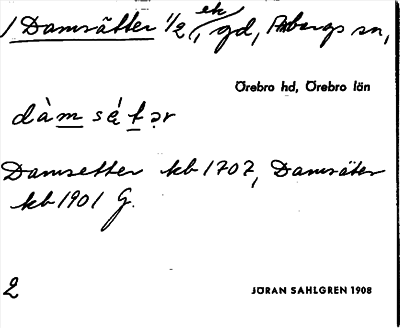 1 Damsätter 1/2 ek, gd, Ånbergs sn,
Örebro hd, Örebro län
dàm sé̜tər
Damsetter kb 1707, Damsäter
kb 1901 G.
2
JÖRAN SAHLGREN 1908